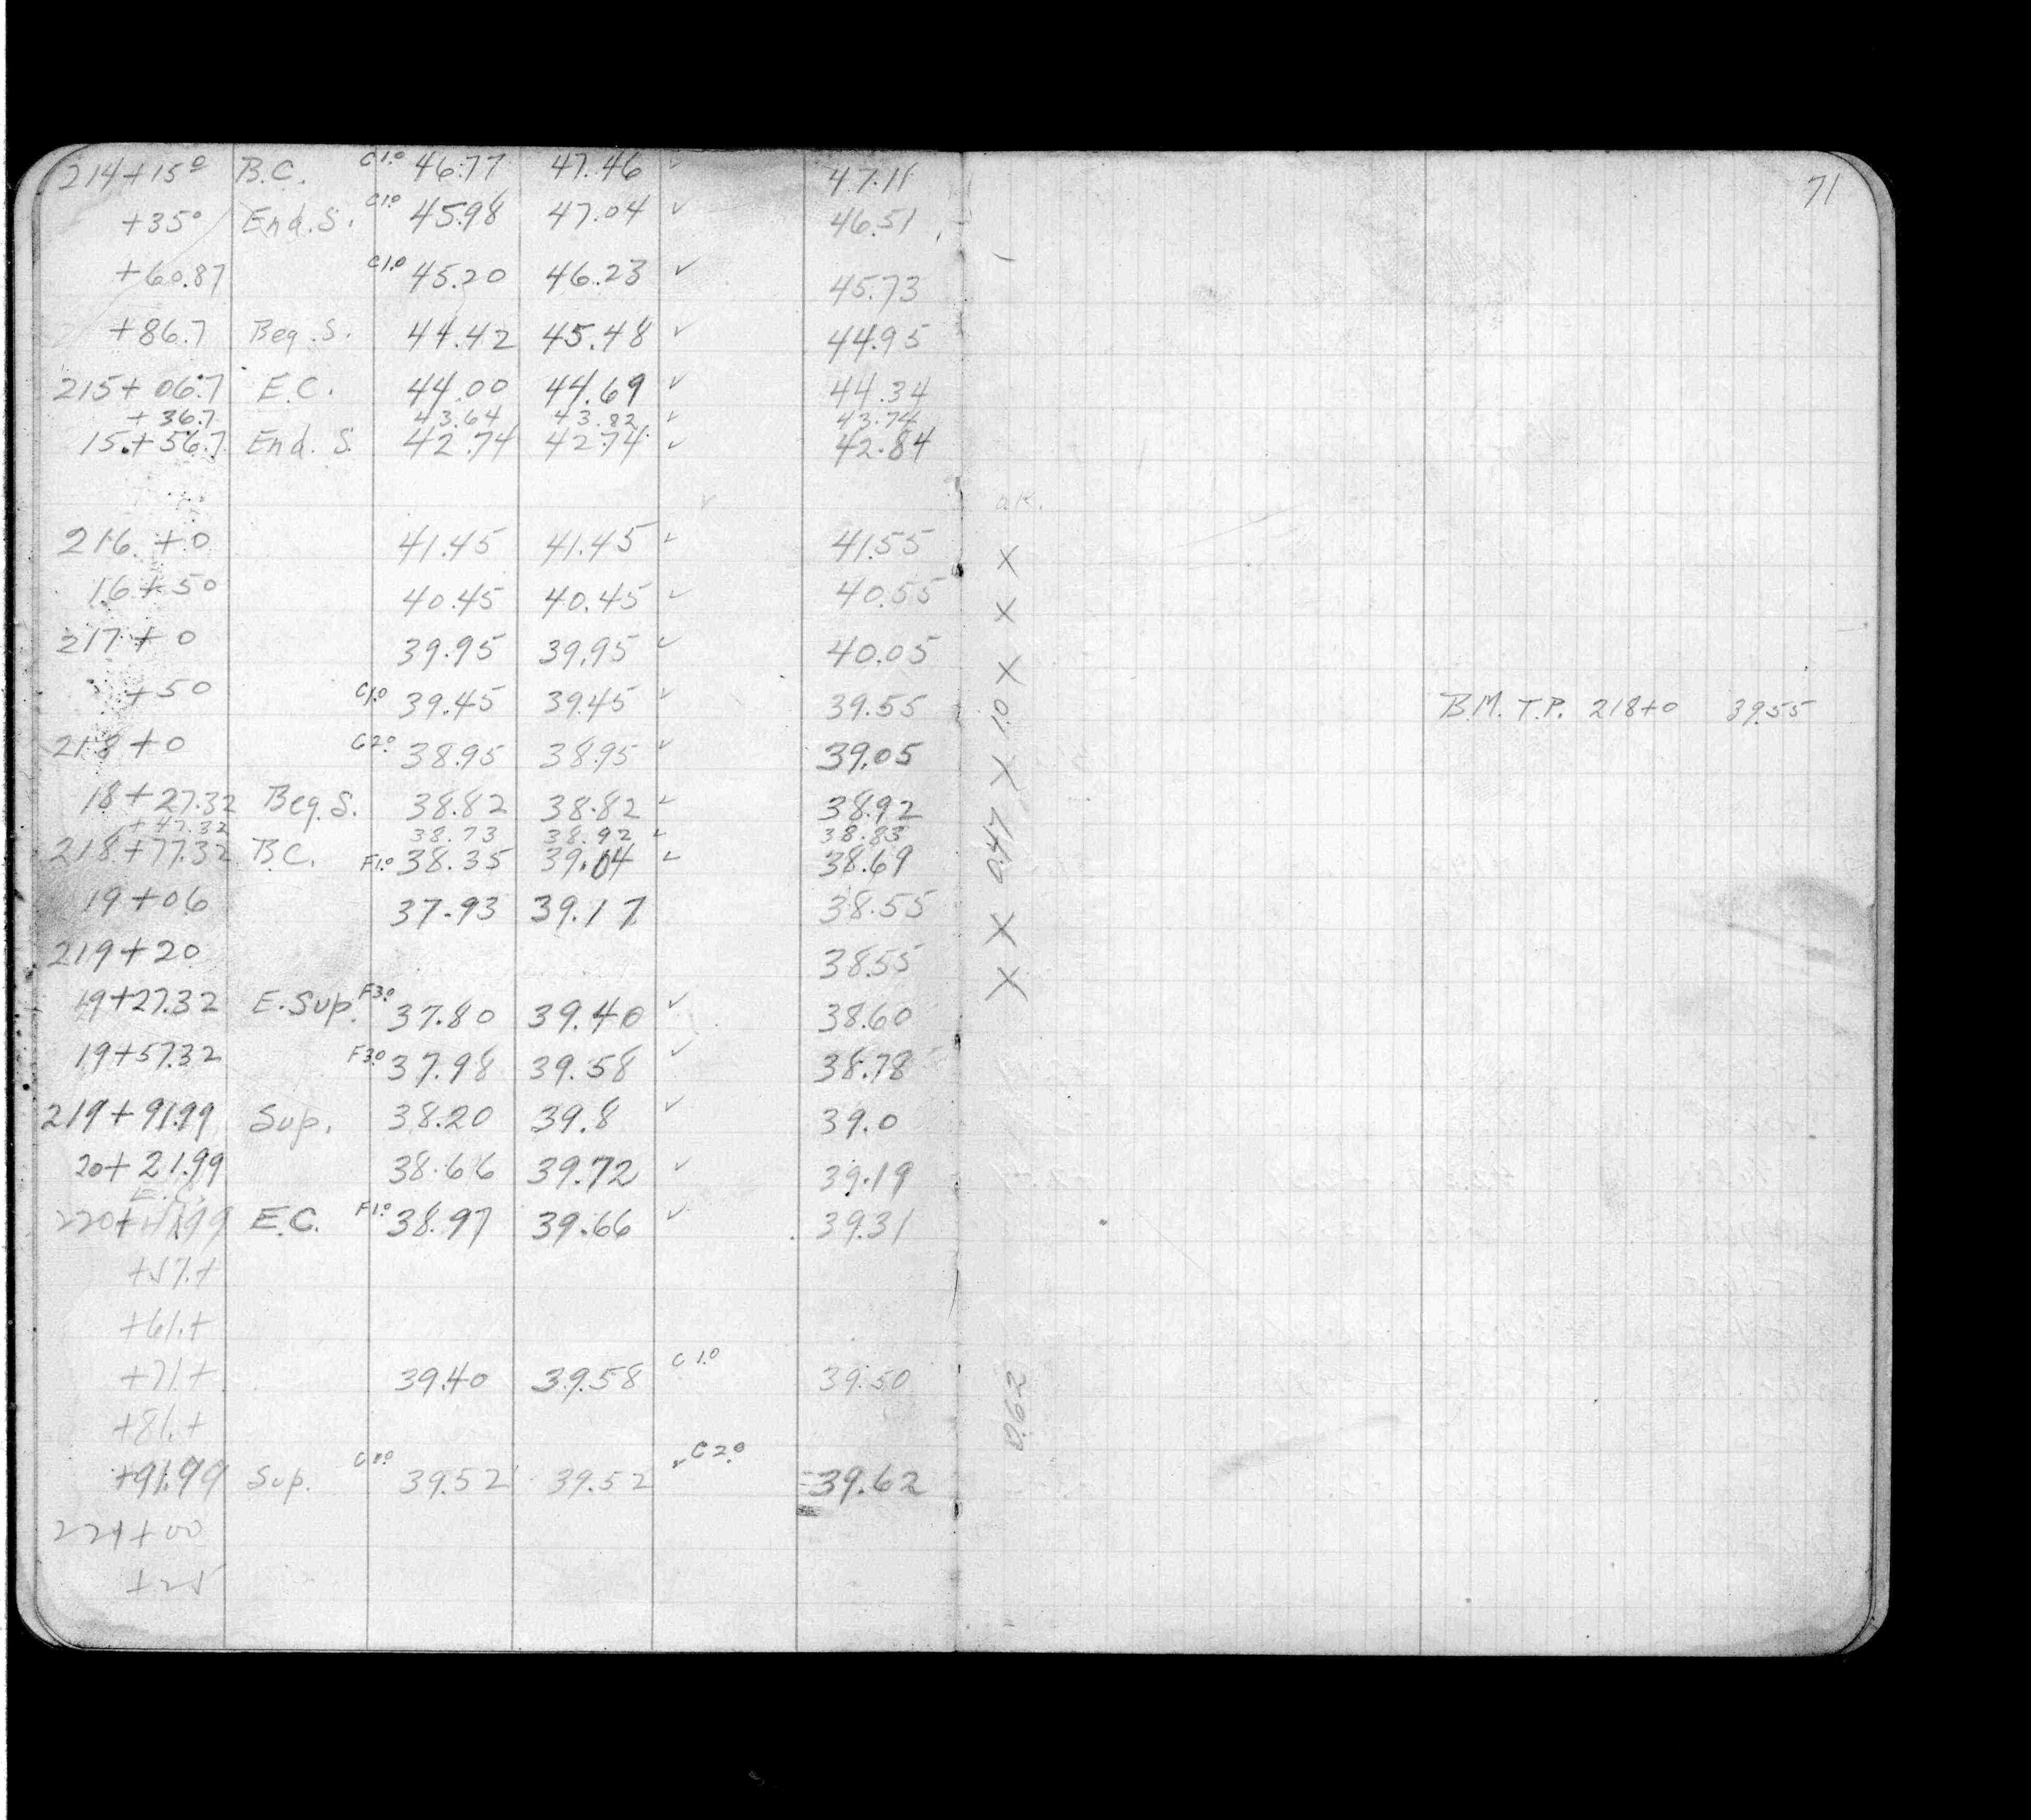 214+15⁰ B.C. C1.⁰ 46.77 47.46 ✓ 47.11
+35⁰ End.S. C1.⁰ 45.98 47.04 ✓ 46.51
+60.87 C1.⁰ 45.20 46.23 ✓ 45.73
+86.7 Beg.S. 44.42 45.48 ✓ 44.95
215+06.7 E.C. 44.00 44.69 ✓ 44.34
+36.7 43.64 43.82 ✓ 43.74
15.+56.7 End.S. 42.74 42.74 ✓ 42.84
✓ O.K.
216.+0 41.45 41.45 ✓ 41.55 X
16+50 40.45 40.45 ✓ 40.55 X
217+0 39.95 39.95 ✓ 40.05 X
+50 C1.⁰ 39.45 39.45 ✓ 39.55 1.0
218+0 C2.⁰ 38.95 38.95 ✓ 39.05 X
18+27.32 Beg.S. 38.82 38.82 ✓ 38.92
+47.32 38.73 38.92 ✓ 38.83
218+77.32 B.C. F1.⁰ 38.35 39.04 ✓ 38.69 0.47
19+06 37.93 39.17 38.55 X
219+20 38.55 X
19+27.32 E.Sup. F3.⁰ 37.80 39.40 ✓ 38.60
19+57.32 F3.⁰ 37.98 39.58 ✓ 38.78
219+91.99 Sup. 38.20 39.8 ✓ 39.0
20+21.99 38.66 39.72 ✓ 39.19
E.C.
220+41.99 E.C. F1.⁰ 38.97 39.66 ✓ 39.31
+57.+
+61.+
+71+ 39.40 39.58 C1.⁰ 39.50
+81.+ 0.62
+91.99 Sup. 39.52 39.52 ✓ C2.⁰ 39.62
221+00
+25
71
B.M. T.P. 218+0 39.55